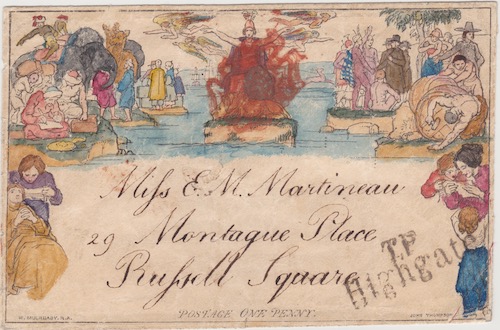 Miss E. M. Martineau
29 Montague Place
Russell Square
T.P
Highgate
POSTAGE ONE PENNY.
W. MULREADY. R.A.
JOHN THOMPSON